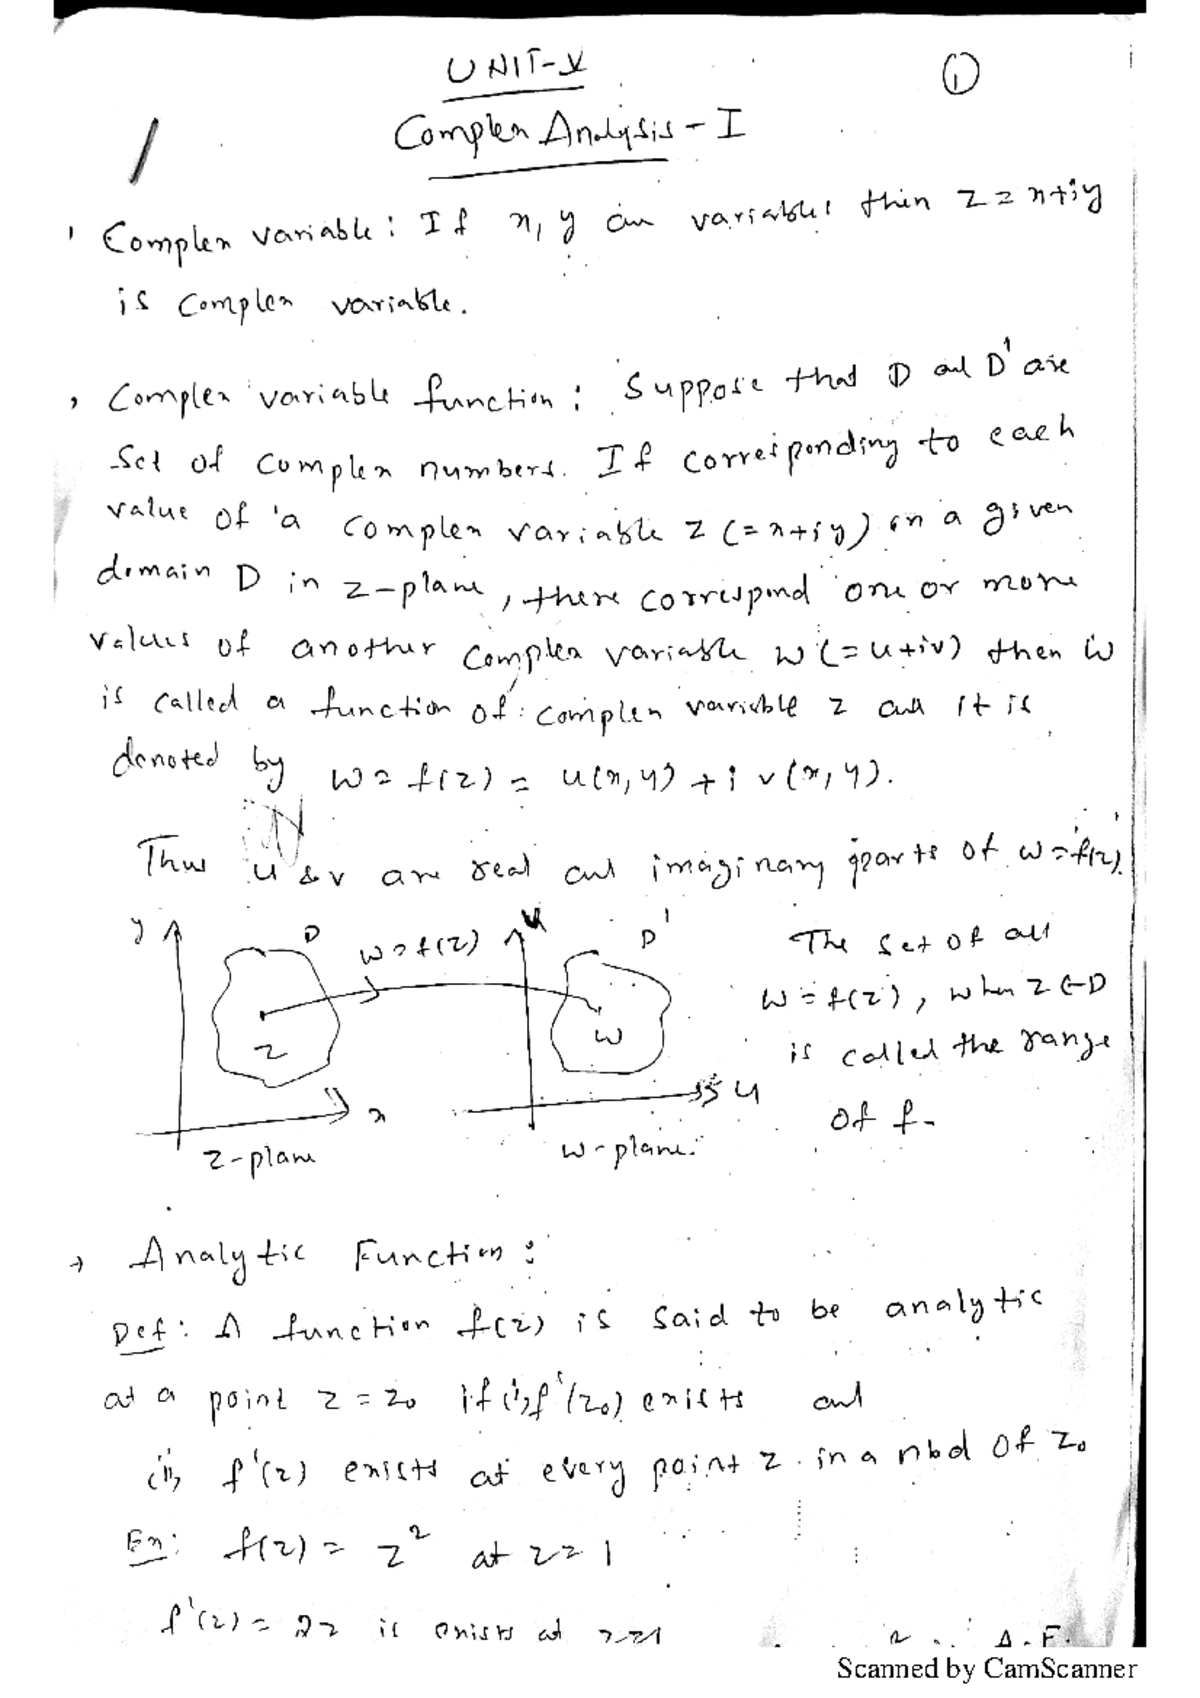 UNIT-V
1
Complex Analysis - I
Complex variable: If x, y are variables then z = x+iy
is complex variable.
Complex variable function: Suppose that D and D' are
set of complex numbers. If corresponding to each
value of a complex variable z (= x+iy) in a given
domain D in z-plane, there correspond one or more
values of another complex variable w (= u+iv) then w
is called a function of complex variable z and it is
denoted by w = f(z) = u(x, y) + i v(x, y).
Thus u & v are real and imaginary parts of w = f(z).
y
D
w = f(z)
D'
z
w
x
u
z-plane
w-plane
The set of all
w = f(z), when z ∈ D
is called the range
of f.
→ Analytic Function:
Def: A function f(z) is said to be analytic
at a point z = z₀ if (i) f'(z₀) exists and
(ii) f'(z) exists at every point z in a nbd of z₀
Ex: f(z) = z² at z = 1
f'(z) = 2z is exists at z=1
A.F.
Scanned by CamScanner